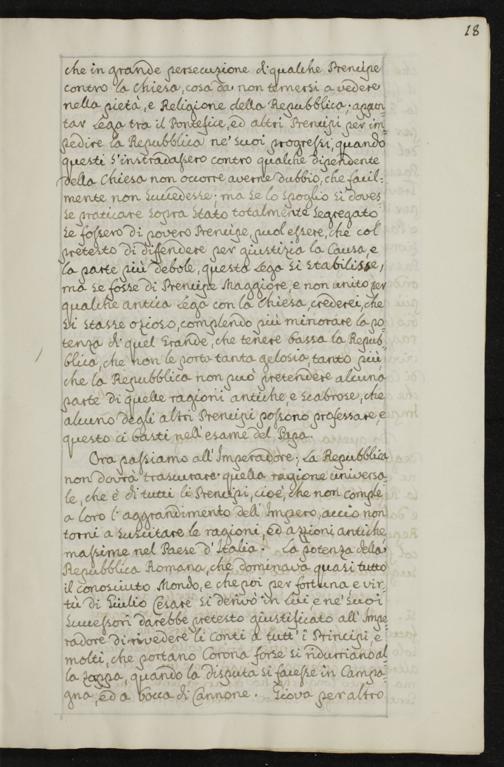 18
che in grande persecuzione di qualche Prencipe
contro la Chiesa, cosa da non temersi a vedere
nella pietà, e Religione della Repubblica, appun-
tar Lega tra il Pontefice, ed altri Prencipi per im-
pedire la Repubblica ne' suoi progressi, quando
questi s'instradassero contro qualche dipendente
della Chiesa non occorre averne dubbio, che facil-
mente non succedesse; ma se lo spoglio si doves
se praticare sopra stato totalmente segregato
se fossero di povero Prencipe puol essere, che col
pretesto di difendere per giustizia la Causa, e
la parte più debole, questa Lega si stabilisse,
ma se fosse di Prencipe Maggiore, e non unito per
qualche antica Lega con la Chiesa, crederei, che
si stasse ozioso, complendo più minorare la po-
tenza di quel Grande, che tenere bassa la Repub-
blica, che non le porta tanta gelosia, tanto più
che la Repubblica non può pretendere alcuna
parte di quelle ragioni antiche, e scabrose, che
alcuno degli altri Prencipi possono professare, e
questo ci basti nell'esame del Papa.
Ora passiamo all'Imperadore; La Repubblica
non dovrà trascurare quella ragione universa-
le, che è di tutti li Prencipi, cioè, che non comple
a loro l'aggrandimento dell'Impero, acciò non
torni a suscitare le ragioni, ed azzioni antiche
massime nel Paese d'Italia. La potenza della
Repubblica Romana, che dominava quasi tutto
il conosciuto Mondo, e che poi per fortuna e vir-
tù di Giulio Cesare si derivò in lui, e ne' suoi
successori darebbe pretesto giustificato all'Impe
radore di rivedere li conti a tutti i Principi, e
molti, che portano Corona forse si ridurriano al
la zappa, quando la disputa si facesse in Campa-
gna, ed a bocca di Cannone. Giova per altro